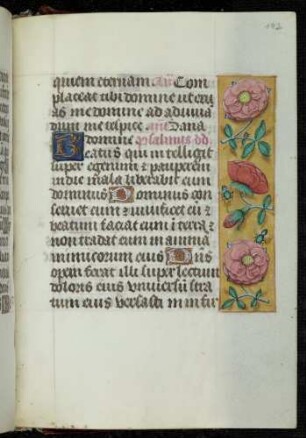 142
quiem eternam. Añ Com
placeat tibi domine ut eru
as me domine ad adiuua
dum me respice añ Sana
domine psalmus dd
Beatus qui intelligit
super egenum et pauperem
in die mala liberabit eum
dominus Dominus con
seruet eum et viuificet eū et
beatum faciat eum in terra et
non tradat eum in animā
inimicorum eius Dñs
opem ferat illi super lectum
doloris eius vniuersū stra
tum eius versasti in infir